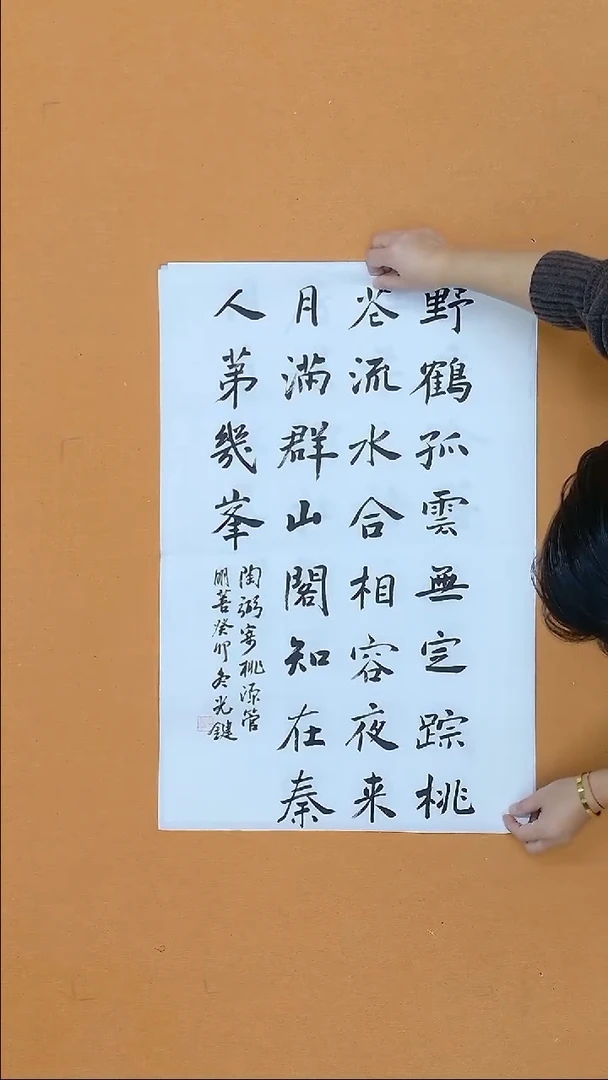 野鶴孤雲無定踪桃
花流水合相容夜来
月滿群山閣知在秦
人第幾峯
陶弼寄桃源管
明善癸卯冬光鍵